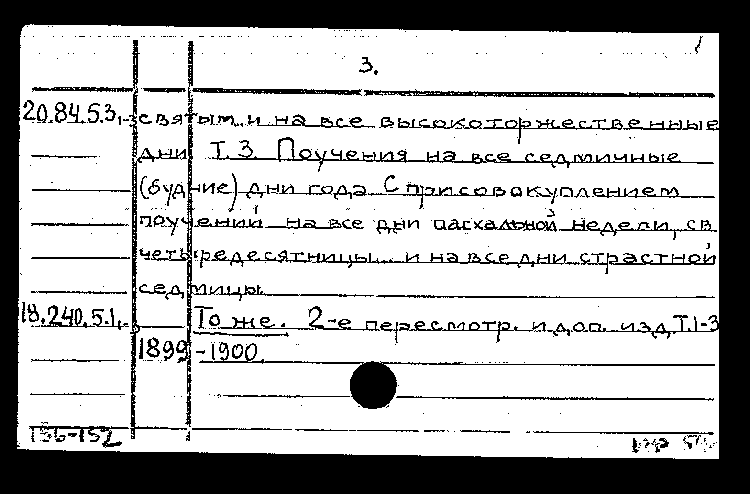 3.
20.84.5.3,1-3 святым и на все высокоторжественные
дни Т.3. Поучения на все седмичные
(будние) дни года С присовокуплением
поучений на все дни пасхальной недели, св
четыредесятницы... и на все дни страстной
седмицы
18.240.5.1,1-3 То же. 2-е пересмотр. и доп. изд. Т.1-3
1899-1900.